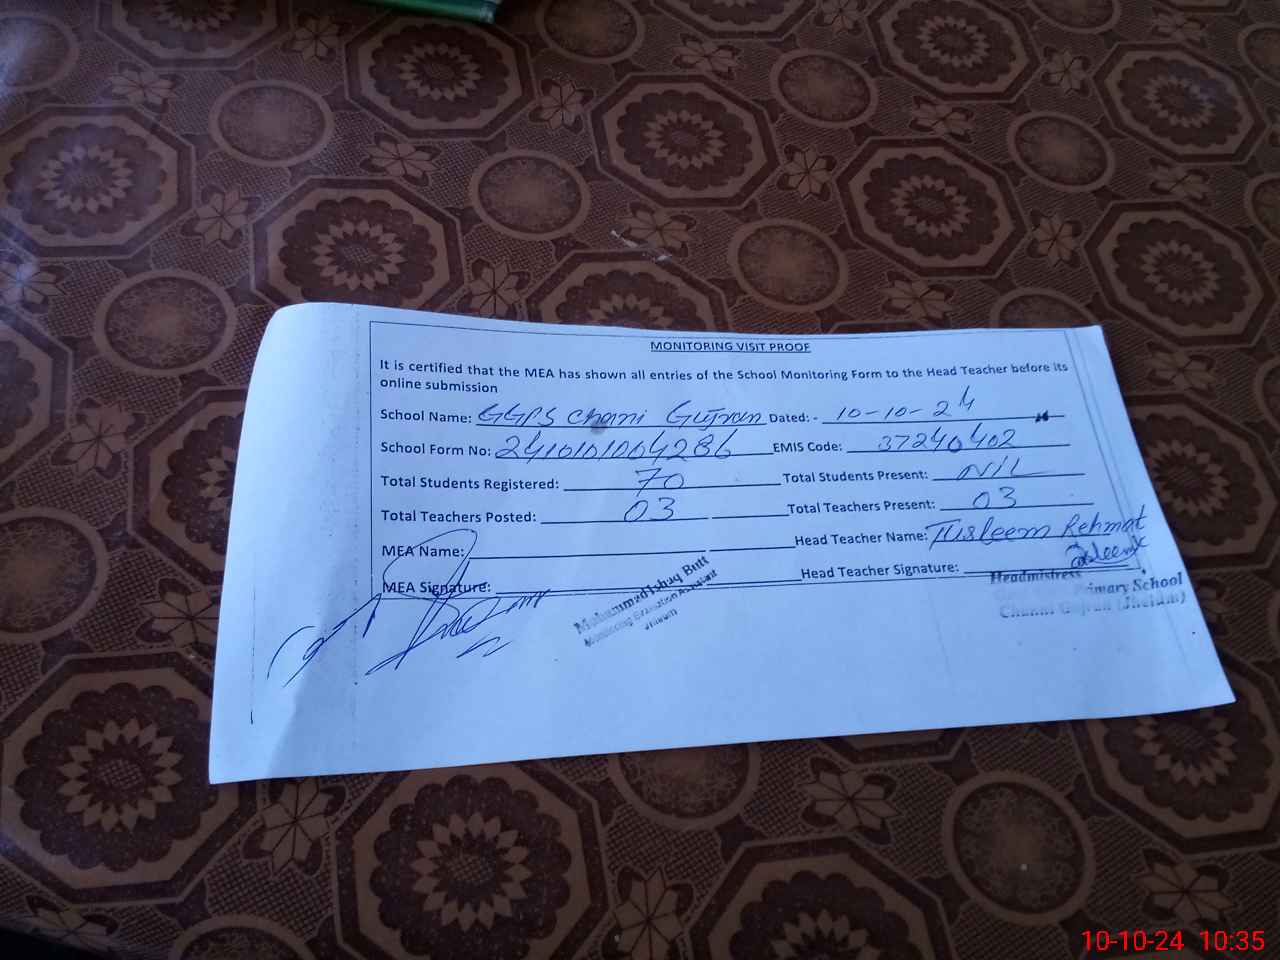 MONITORING VISIT PROOF
It is certified that the MEA has shown all entries of the School Monitoring Form to the Head Teacher before its
online submission
School Name: GGPS Chani Gujran Dated: - 10-10-24
School Form No: 2410101004286 EMIS Code: 37240402
Total Students Registered: 70 Total Students Present: Nil
Total Teachers Posted: 03 Total Teachers Present: 03
MEA Name: Head Teacher Name: Tusleem Rehmat
MEA Signature: Head Teacher Signature:
Muhammad Ishaq Butt
Monitoring Evaluation Assistant
Jhelum
Headmistress
Primary School
Channi Gujran (Jhelum)
10-10-24 10:35